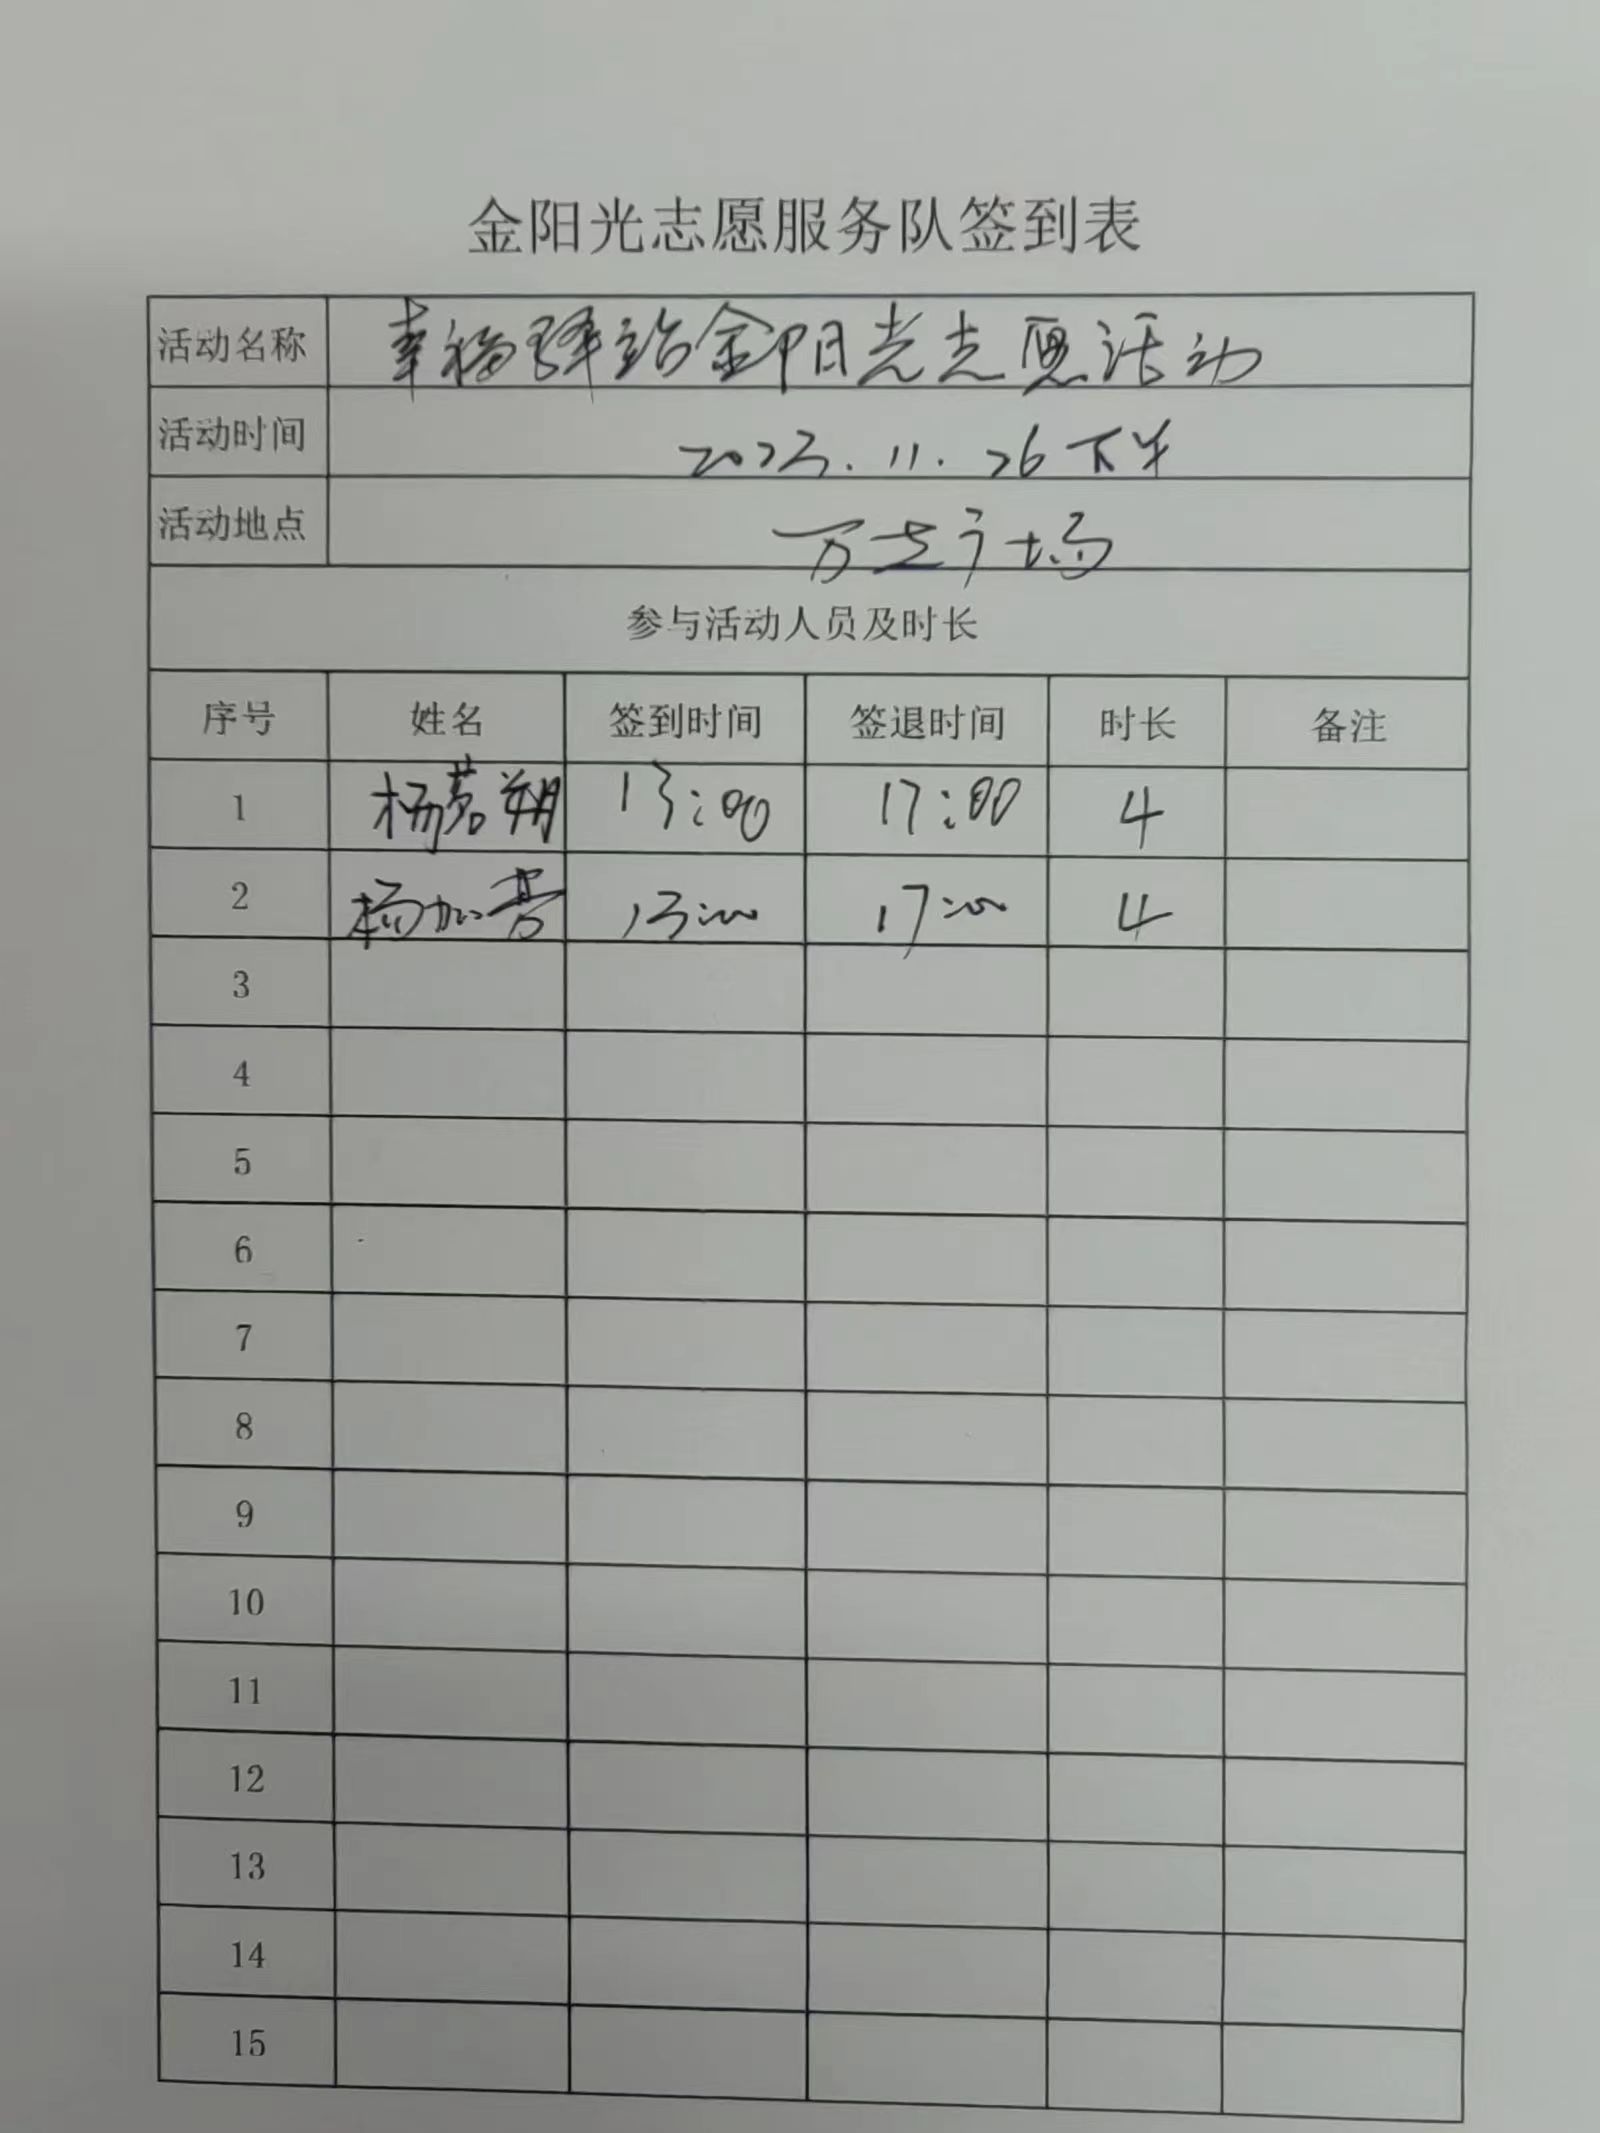 金阳光志愿服务队签到表
活动名称 幸福驿站金阳光志愿活动
活动时间 2023.11.26下午
活动地点 万达广场
参与活动人员及时长
序号 姓名 签到时间 签退时间 时长 备注
1 杨茗朔 13:00 17:00 4
2 杨加 13:00 17:00 4
3
4
5
6
7
8
9
10
11
12
13
14
15